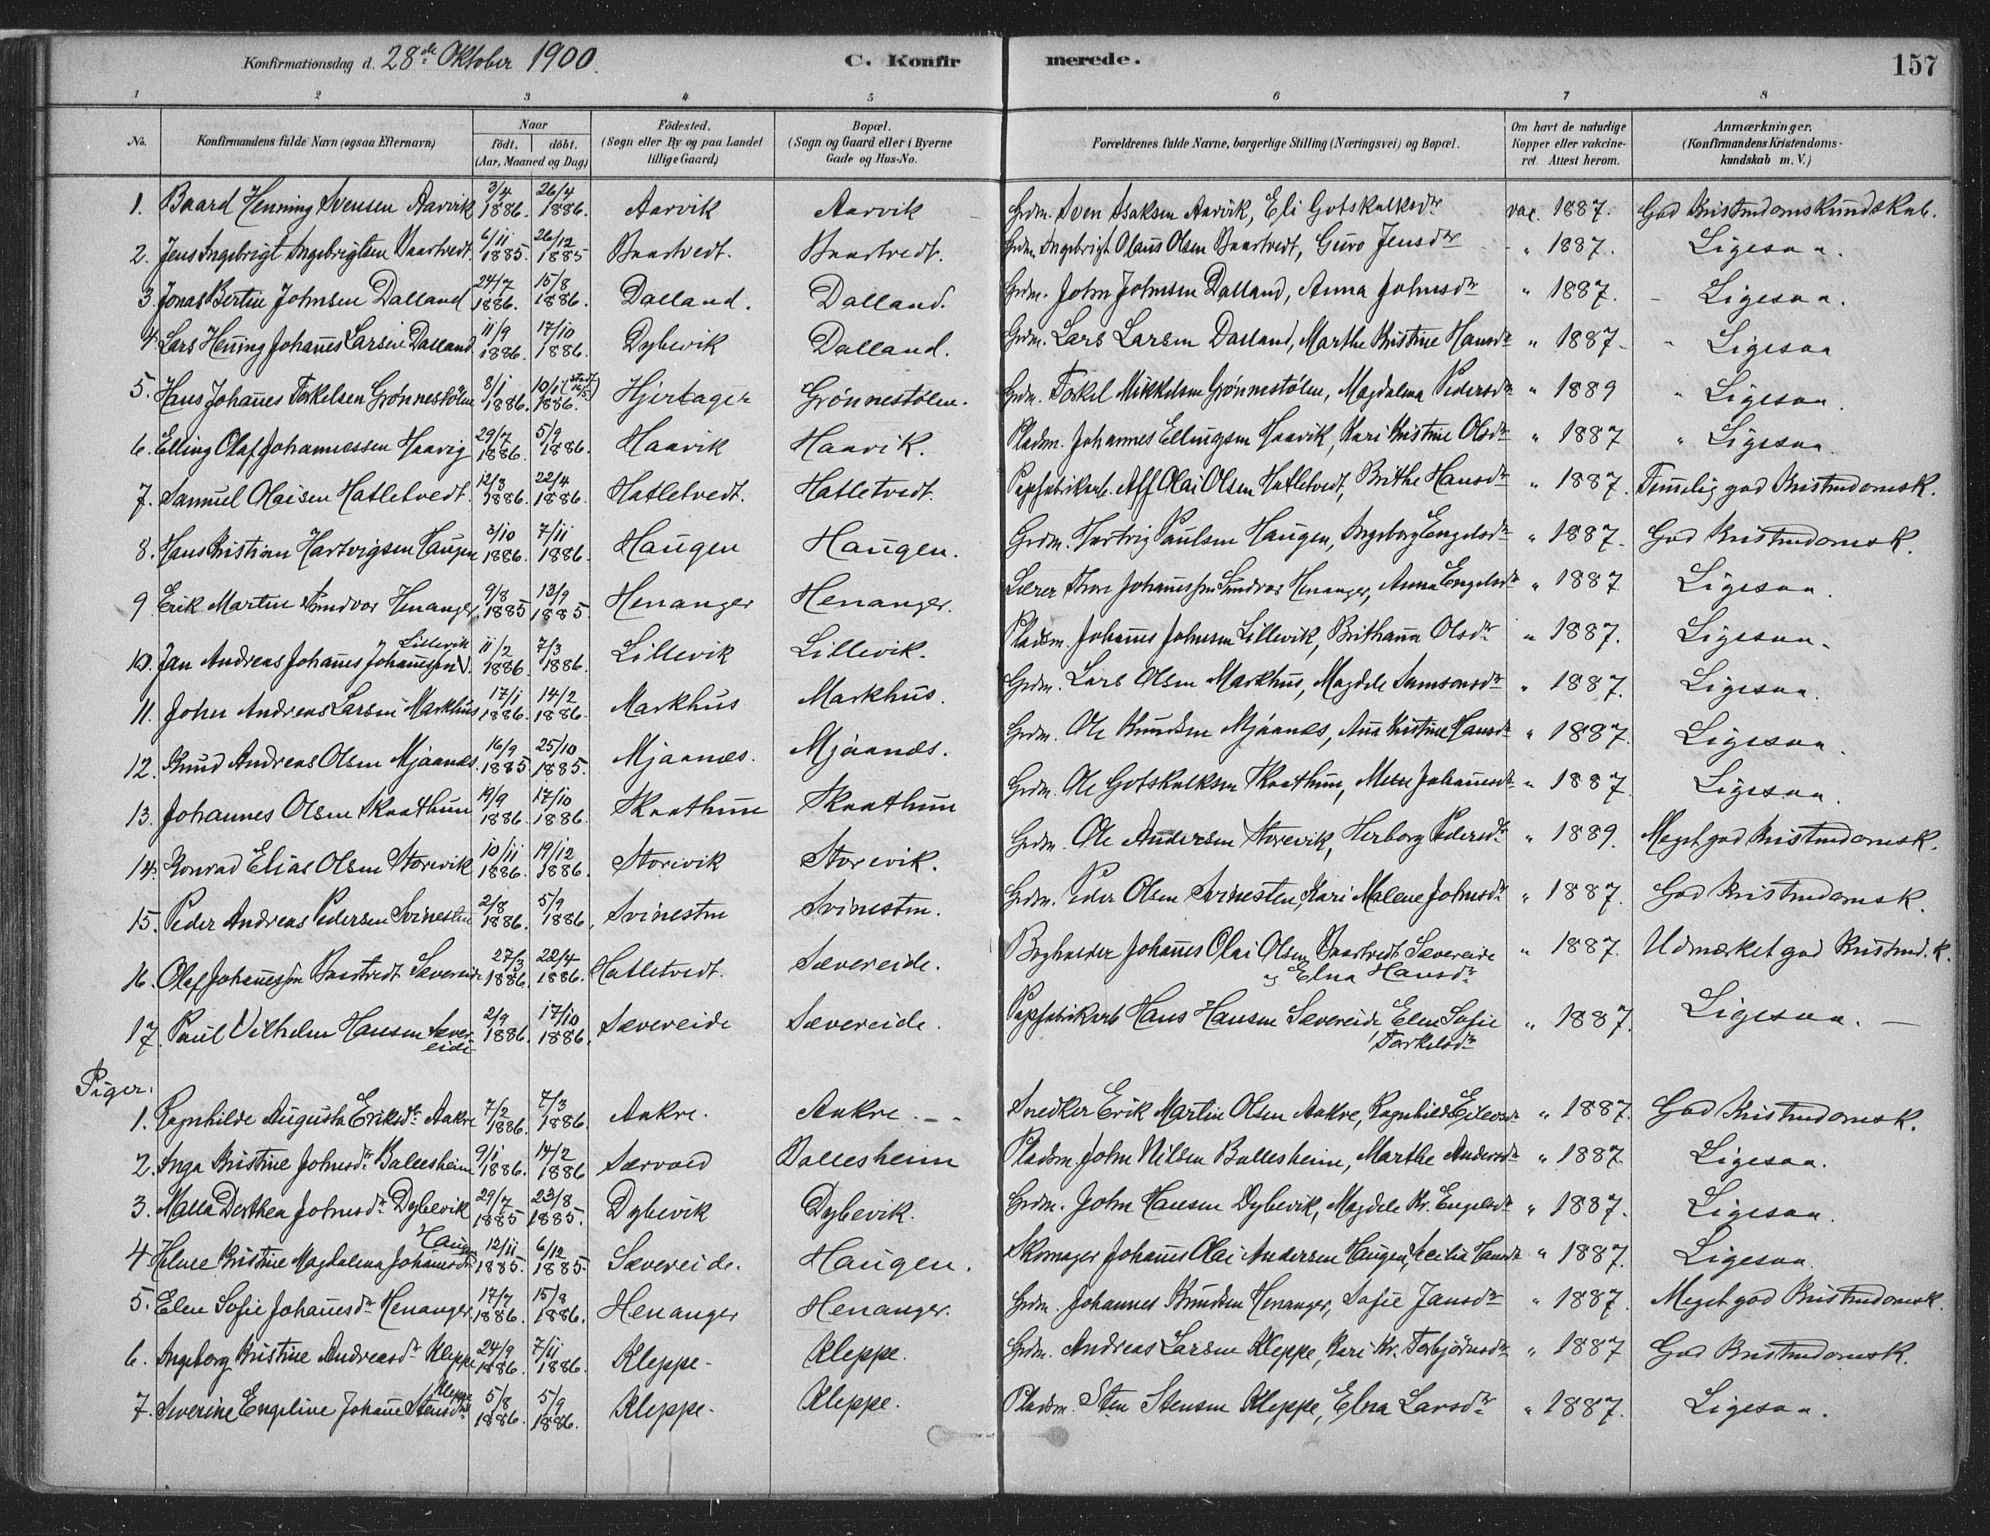 Konfirmationsdag d. 28de Oktober 1900. C. Konfirmerede. 157
1 2 3 4 5 6 7 8
No. Konfirmandens fulde Navn (ogsaa Efternavn) Naar født. døbt. (Aar, Maaned og Dag) Fødested. (Sogn eller By og paa Landet tillige Gaard) Bopæl. (Sogn og Gaard eller i Byerne Gade og Hus-No. Forældrenes fulde Navne, borgerlige Stilling (Næringsvei) og Bopæl. Om havt de naturlige Kopper eller vaccineret. Attest herom. Anmærkninger. (Konfirmandens Kristendomskundskab m. V.)
1. Baard Henning Svensen Aarvik 3/4 1886. 26/4 1886. Aarvik Aarvik Grdm. Sven Isaksen Aarvik, Eli Gotskalksdr vac. 1887. God Kristendomskundskab.
2. Jens Ingebrigt Ingebrigtsen Baartvedt 6/11 1885. 26/12 1885 Baartvedt. Baartvedt. Grdm. Ingebrigt Olaus Olsen Baartvedt, Guro Jensdr " 1887. Ligesaa.
3. Jonas Bertin Johnsen Dalland 24/7 1886. 15/8 1886. Dalland. Dalland. Grdm. John Johnsen Dalland, Anna Johnsdr " 1887. Ligesaa.
4. Lars Hening Johanes Larsen Dalland 11/9 1886. 17/10 1886. Dybevik Dalland. Grdm. Lars Larsen Dalland, Marthe Kristine Hansdr " 1887 Ligesaa
5. Hans Johanes Torkelsen Grønnestølen 8/1 1886. 10/1 1886. Hjertager Grønnestølen. Grdm. Torkel Mikkelsen Grønnestølen, Magdalena Pedersdr " 1889 Ligesaa.
6. Elling Olaf Johannessen Haavig 29/7 1886. 5/9 1886. Haavik Haavik. Pladsm. Johannes Ellingsen Haavik, Kari Kristine Olsdr " 1887 Ligesaa.
7. Samuel Olaisen Hatletvedt. 12/3 1886. 22/4 1886. Hatletvedt. Hatletvedt. Papfabrikarb. Alf Olai Olsen Hatletvedt, Brithe Hansdr " 1887. Temmelig god Kristendomsk.
8. Hans Kristian Hartvigsen Haugen 3/10 1886. 7/11 1886. Haugen Haugen. Grdm. Hartvig Paulsen Haugen, Ingeborg Engelsdr " 1887. God Kristendomsk.
9. Erik Martin Sundvor Henanger 9/8 1885 13/9 1885. Henanger Henanger. Lærer Thore Johannessen Sundvor Henanger, Anna Engelsdr " 1887 Ligesaa.
10. Jan Andreas Johanes Johanesen Lillevik 11/2 1886. 7/3 1886. Lillevik Lillevik. Pladsm. Johanes Johnsen Lillevik, Brithanna Olsdr " 1887. Ligesaa.
11. Johan Andreas Larsen Markhus 17/1 1886. 14/2 1886. Markhus Markhus. Grdm. Lars Olsen Markhus, Magdele Samsonsdr " 1887. Ligesaa.
12. Knud Andreas Olsen Mjaanes. 16/9 1885 25/10 1885. Mjaanes. Mjaanes. Grdm. Ole Knudsen Mjaanes, Ana Kristine Hansdr " 1887. Ligesaa.
13. Johannes Olsen Skaathun 19/9 1886. 17/10 1886. Skaathun Skaathun Grdm. Ole Gotskalksen Skaathun, Johanesdr " 1887. Ligesaa.
14. Konrad Elias Olsen Storevik 10/11 1886. 19/12 1886. Storevik Storevik. Grdm. Ole Andersen Storevik, Herborg Pedersdr " 1889. Meget god Kristendomsk.
15. Peder Andreas Pedersen Svinesten 2/8 1886. 5/9 1886. Svinesten Svinesten. Grdm. Peder Olsen Svinesten, Kari Malene Johnsdr " 1887. God Kristendomsk.
16. Olaf Johanessen Baartvedt Sævereide 27/3 1886. 22/4 1886. Hatletvedt. Sævereide. Bogholder Johanes Olai Olsen Baartvedt Sævereide " 1887. Udmærket god Kristend.k.
og Elna Hansdr
17. Paul Vilhelm Hansen Sævereide 2/9 1886. 17/10 1886. Sævereide Sævereide. Papfabrikarb Hans Hansen Sævereide, Elen Sofie " 1887. Ligesaa.
Torkelsdr
Piger.
1. Ragnhilde Augusta Eriksdr. Aakre 7/2 1886. 7/3 1886. Aakre. Aakre. Snedker Erik Martin Olsen Aakre, Ragnhild Eilevsdr " 1887. God Kristendomsk.
2. Inga Kristine Johnsdr. Ballesheim 9/1 1886. 14/2 1886 Særvold Ballesheim Pladsm. John Nilsen Ballesheim, Marthe Andersdr " 1887. Ligesaa.
3. Malla Dorthea Johnsdr. Dybevik 29/7 1885 23/8 1885. Dybevik Dybevik. Grdm. John Hansen Dybevik, Magdele Kr. Engelsdr " 1887. Ligesaa.
4. Kristine Magdalena Johanesdr Haugen 12/11 1885. 6/12 1885 Sævereide. Haugen. Skomager Johanes Olai Andersen Haugen, Cecilia Hansdr " 1887. Ligesaa.
5. Elen Sofie Johanesdr Henanger 17/7 1886. 15/8 1886. Henanger Henanger. Grdm. Johannes Knudsen Henanger, Sofie Jansdr " 1887. Meget god Kristendomsk.
6. Ingeborg Kristine Andreasdr Kleppe 24/9 1886. 7/11 1886. Kleppe. Kleppe. Grdm. Andreas Larsen Kleppe, Kari Kr. Torbjørnsdr " 1887 God Kristendomsk.
7. Severine Engeline Johane Stensdr Kleppe 5/8 1886. 5/9 1886. Kleppe. Kleppe. Pladsm. Sten Stensen Kleppe, Elna Larsdr " 1887. Ligesaa.